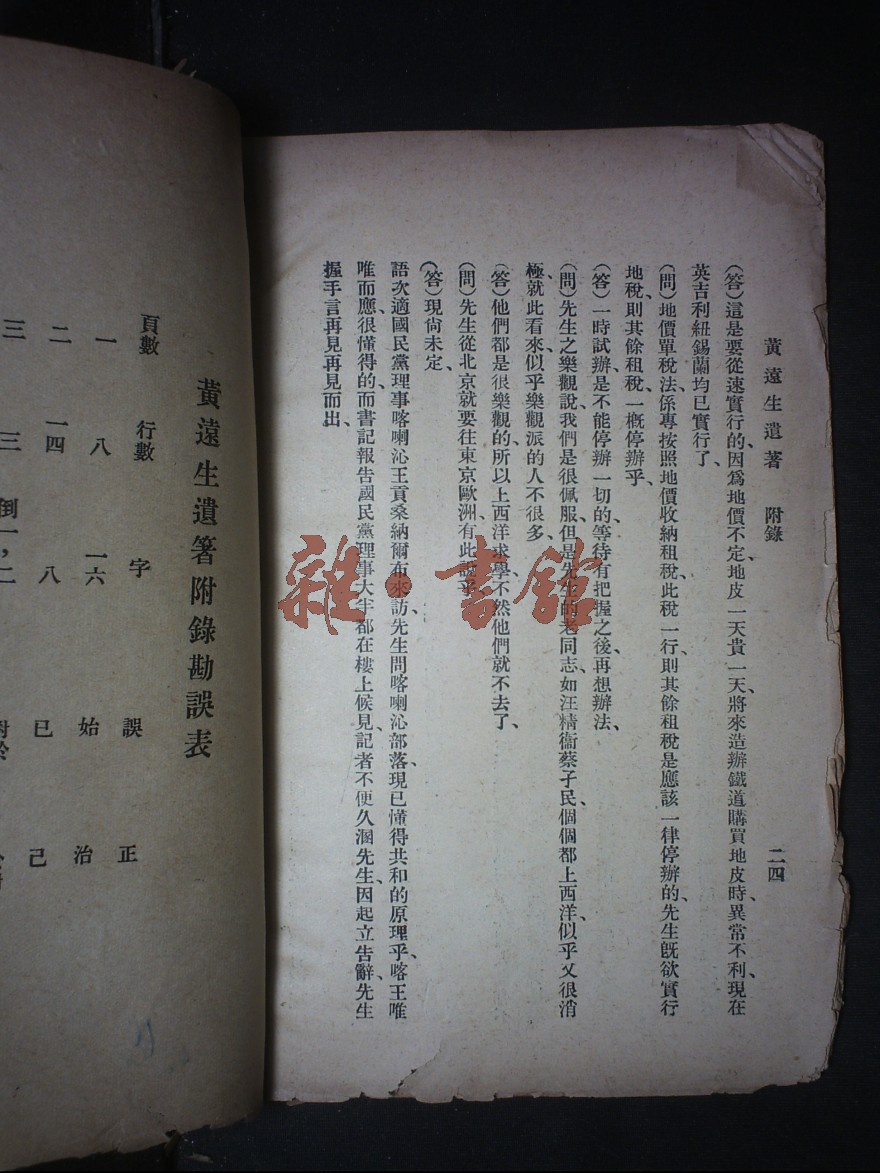 黃遠生遺著　附錄　二四
(答)這是要從速實行的、因爲地價不定、地皮一天貴一天、將來造辦鐵道購買地皮時、異常不利、現在
英吉利紐錫蘭均已實行了、
(問)地價單稅法係專按照地價收納租稅、此稅一行、則其餘租稅是應該一律停辦的、先生旣欲實行
地稅、則其餘租稅、一概停辦乎、
(答)一時試辦是不能停辦一切的、等待有把握之後、再想辦法、
(問)先生之樂觀說、我們是很佩服、但是先生的老同志、如汪精衞蔡孑民、個個都上西洋、似乎又很消
極、就此看來、似乎樂觀派的人不很多、
(答)他們都是很樂觀的、所以上西洋求學、不然他們就不去了、
(問)先生從北京就要往東京歐洲、有此說乎、
(答)現尙未定、
語次適國民黨理事喀喇沁王貢桑納爾布來訪、先生問喀喇沁部落、現已懂得共和的原理乎、喀王唯
唯而應、很懂得的、而書記報告國民黨理事大半都在樓上候見、記者不便久溷先生、因起立告辭、先生
握手言再見再見而出、
雜·書館
黃遠生遺箸附錄勘誤表
頁數　行數　字　誤　正
一　八　一六　始　治
二　一四　八　已　己
三　三　倒一，二